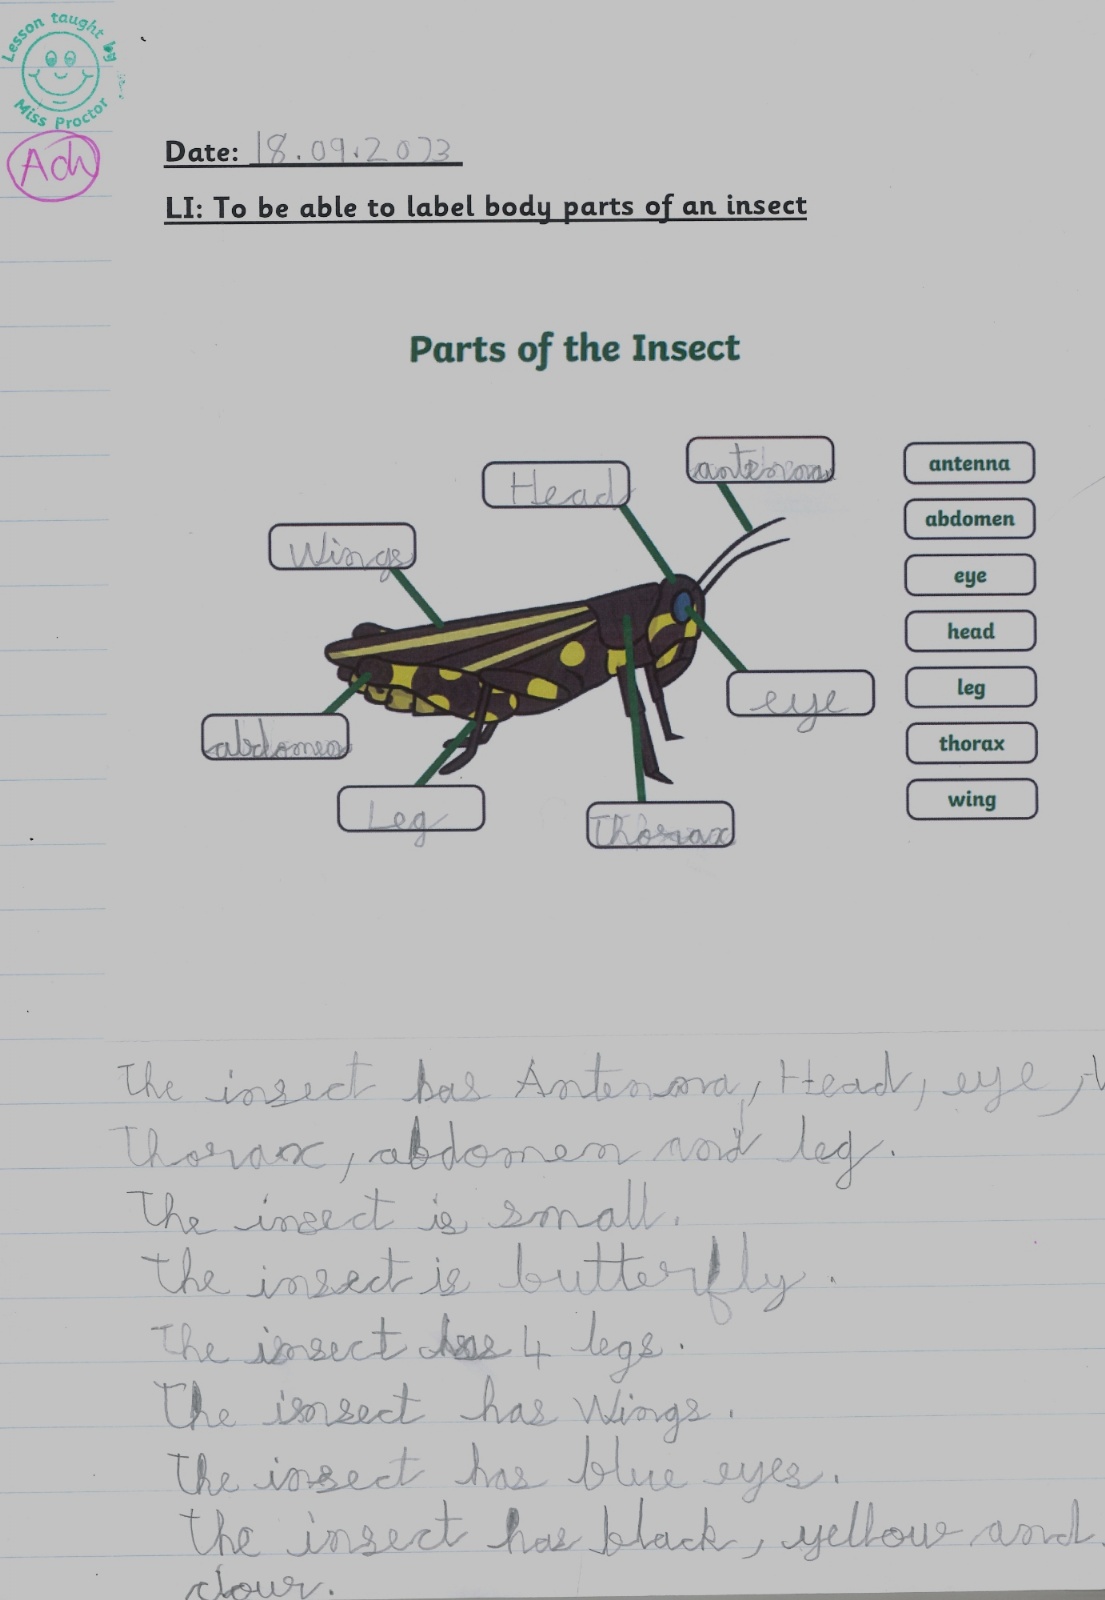 Lesson taught by
Miss Proctor
Ach
Date: 18.09.2023
LI: To be able to label body parts of an insect
Parts of the Insect
antenna
Head
Wings
eye
abdomen
Leg
Thorax
antenna
abdomen
eye
head
leg
thorax
wing
The insect has Antenna, Head, eye,
Thorax, abdomen and leg.
The insect is small.
The insect is butterfly.
The insect has 4 legs.
The insect has Wings.
The insect has blue eyes.
The insect has black, yellow and
clour.